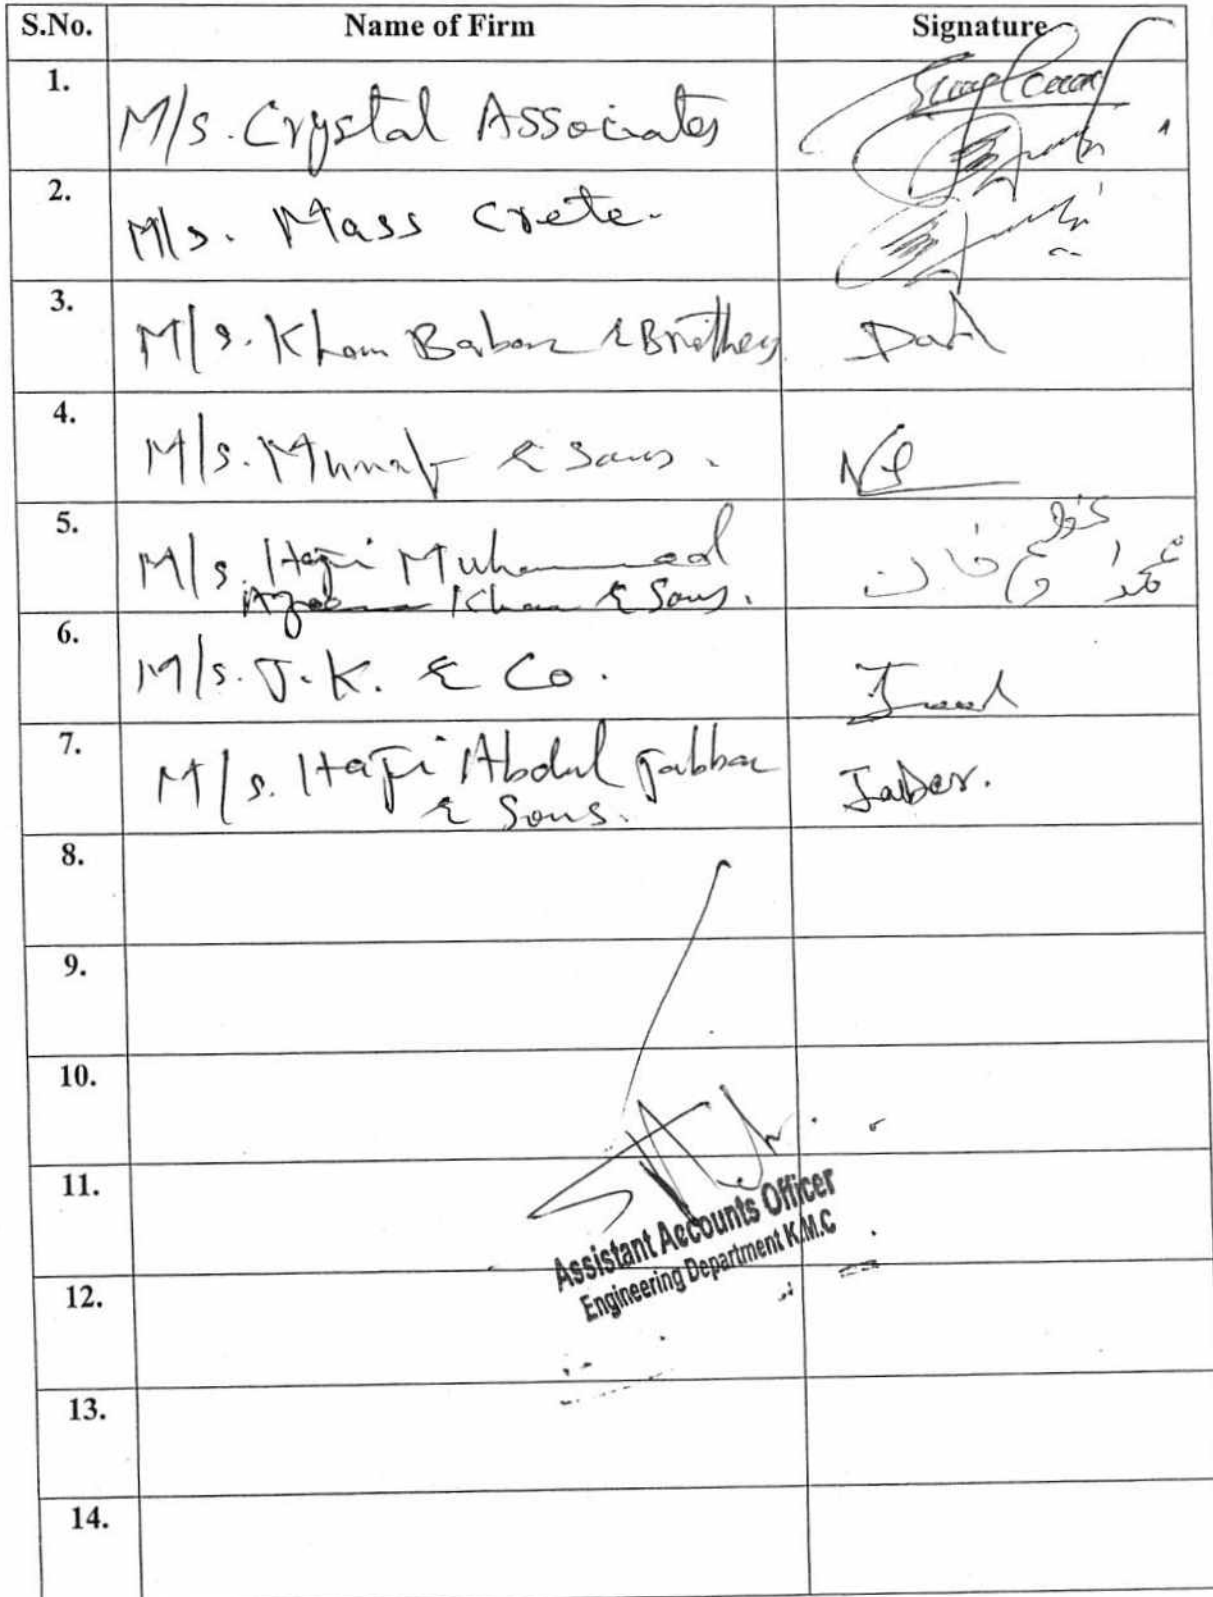 S.No. Name of Firm Signature
1. M/s. Crystal Associates
2. M/s. Mass Crete.
3. M/s. Khan Babar & Brothers
4. M/s. Munaf & Sons.
5. M/s. Haji Muhammad
Khan & Sons.
6. M/s. J.K. & Co.
7. M/s. Haji Abdul Jabbar Jaber.
& Sons.
8.
9.
10.
11.
Assistant Accounts Officer
Engineering Department K.M.C
12.
13.
14.